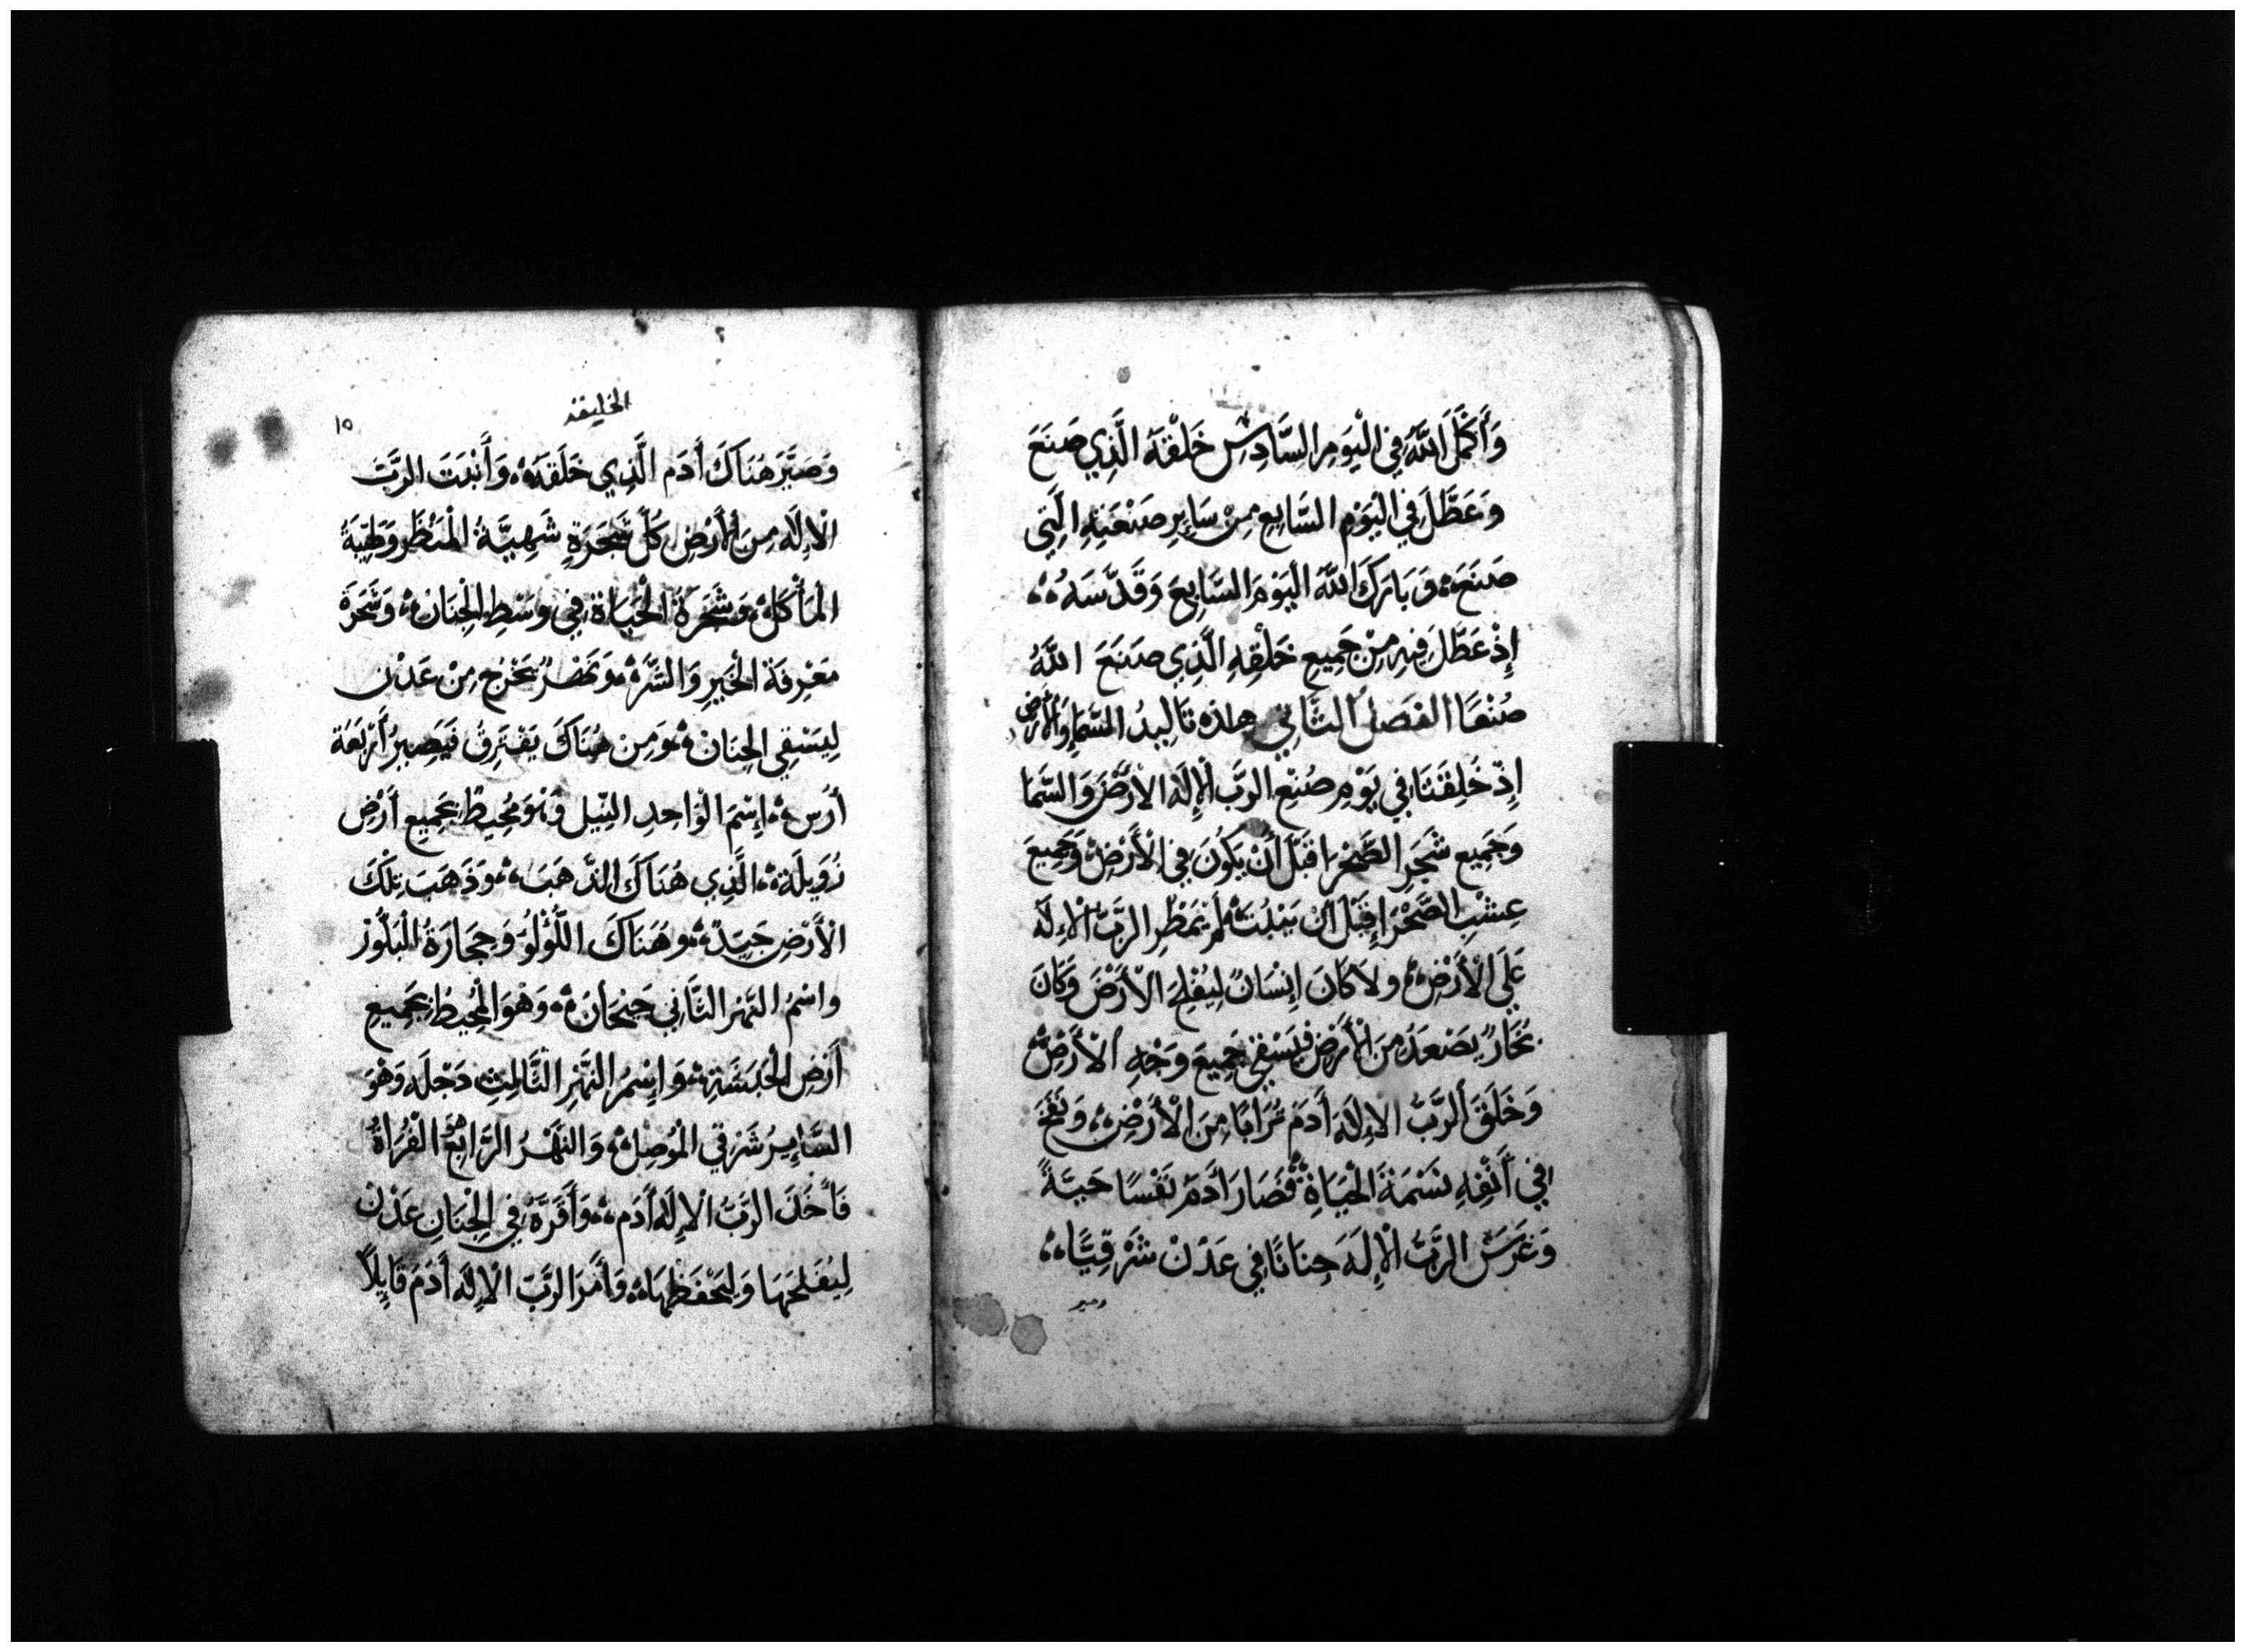 وَأَكْمَلَ اللَّهُ فِي الْيَوْمِ السَّادِسِ خَلْقَهُ الَّذِي صَنَعَ
وَعَطَّلَ فِي الْيَوْمِ السَّابِعِ مِنْ سَايِرِ صَنْعَتِهِ الَّتِي
صَنَعَ وَبَارَكَ اللَّهُ الْيَوْمَ السَّابِعَ وَقَدَّسَهُ
إِذْ عَطَّلَ فِيهِ مِنْ جَمِيعِ خَلْقِهِ الَّذِي صَنَعَ اللَّهُ
صُنْعًا الفَصَلُ الثَّانِي هذه تَالِيدُ السَّمَا وَالْأَرْضِ
إِذْ خُلِقَتَا فِي يَوْمِ صُنْعِ الرَّبِّ الْإِلَهِ الْأَرْضَ وَالسَّمَا
وَجَمِيعِ شَجَرِ الصَّحْرَا قَبْلَ أَنْ يَكُونَ فِي الْأَرْضِ وَجَمِيعَ
عِشْبِ الصَّحْرَا قَبْلَ أَنْ يَنْبُتَ لَمْ يَمْطُرِ الرَّبُّ الْإِلَهُ
عَلَى الْأَرْضِ وَلَا كَانَ إِنْسَانٌ لِيُفْلِحَ الْأَرْضَ وَكَانَ
بُخَارٌ يَصْعَدُ مِنَ الْأَرْضِ فَيَسْقِي جَمِيعَ وَجْهِ الْأَرْضِ
وَخَلَقَ الرَّبُّ الْإِلَهُ أَدَمَ تُرَابًا مِنَ الْأَرْضِ وَنَفَخَ
فِي أَنْفِهِ نَسَمَةَ الْحَيَاةِ فَصَارَ أَدَمُ نَفْسًا حَيَّةً
وَغَرَسَ الرَّبُّ الْإِلَهُ جِنَانًا فِي عَدْنْ شَرْقِيًّا
وصير
الخليقه
١٥
وَصَيَّرَ هُنَاكَ أَدَم الَّذِي خَلَقَهُ وَأَنْبَتَ الرَّبُّ
الْإِلَه مِنَ الْأَرْضِ كُلَّ شَجَرَةٍ شَهِيَّةُ الْمَنْظَرِ وَطَيِّبَةُ
الْمَأْكَلْ وَشَجَرَةَ الْحَيَاة فِي وَسْطِ الْجِنَانْ وَشَجَرَةَ
مَعْرِفَة الْخَيْرِ وَالشَّرِّ وَنَهْرٌ يَخْرُج مِنْ عَدْن
لِيَسْقِي الجِنَان وَمِن هُنَاكَ يَفْتَرِقُ فَيَصِيرُ أَرْبَعَة
أَرُس إِسْمَ الْوَاحِدِ النِّيل وَهُوَ مُحِيطٌ بِجَمِيعِ أَرْضِ
زُوَيلَة الَّذِي هُنَاكَ الذَّهَبَ وَذَهَبَ تِلْكَ
الْأَرْضِ جَيّدْ وَهُنَاكَ اللُّؤْلُؤ وَحِجَارَةُ الْبَلُّوْر
وَاسْمُ النَّهْرِ الثَّانِي جَيْحَانْ وَهْوَ الْمُحِيطُ بِجَمِيعِ
أَرْضِ الْحَبَشَةِ وَإِسْمُ النَّهْرِ الثَّالِثِ دَجْلَه وَهُوَ
السَّايِرُ شَرْقِي الْمُوصِلْ وَالنَّهْرُ الرَّابِعُ الْفُرَاةُ
فَأَخَذَ الرَّبُّ الْإِلَهُ أَدَم وَأَقَرَّهُ فِي الْجِنَانِ عَدْنْ
لِيُفْلِحَهَا وَلِيَحْفَظْهَا وَأَمَرَ الرَّبّ الْإِلَه أَدَمَ قَايِلًا